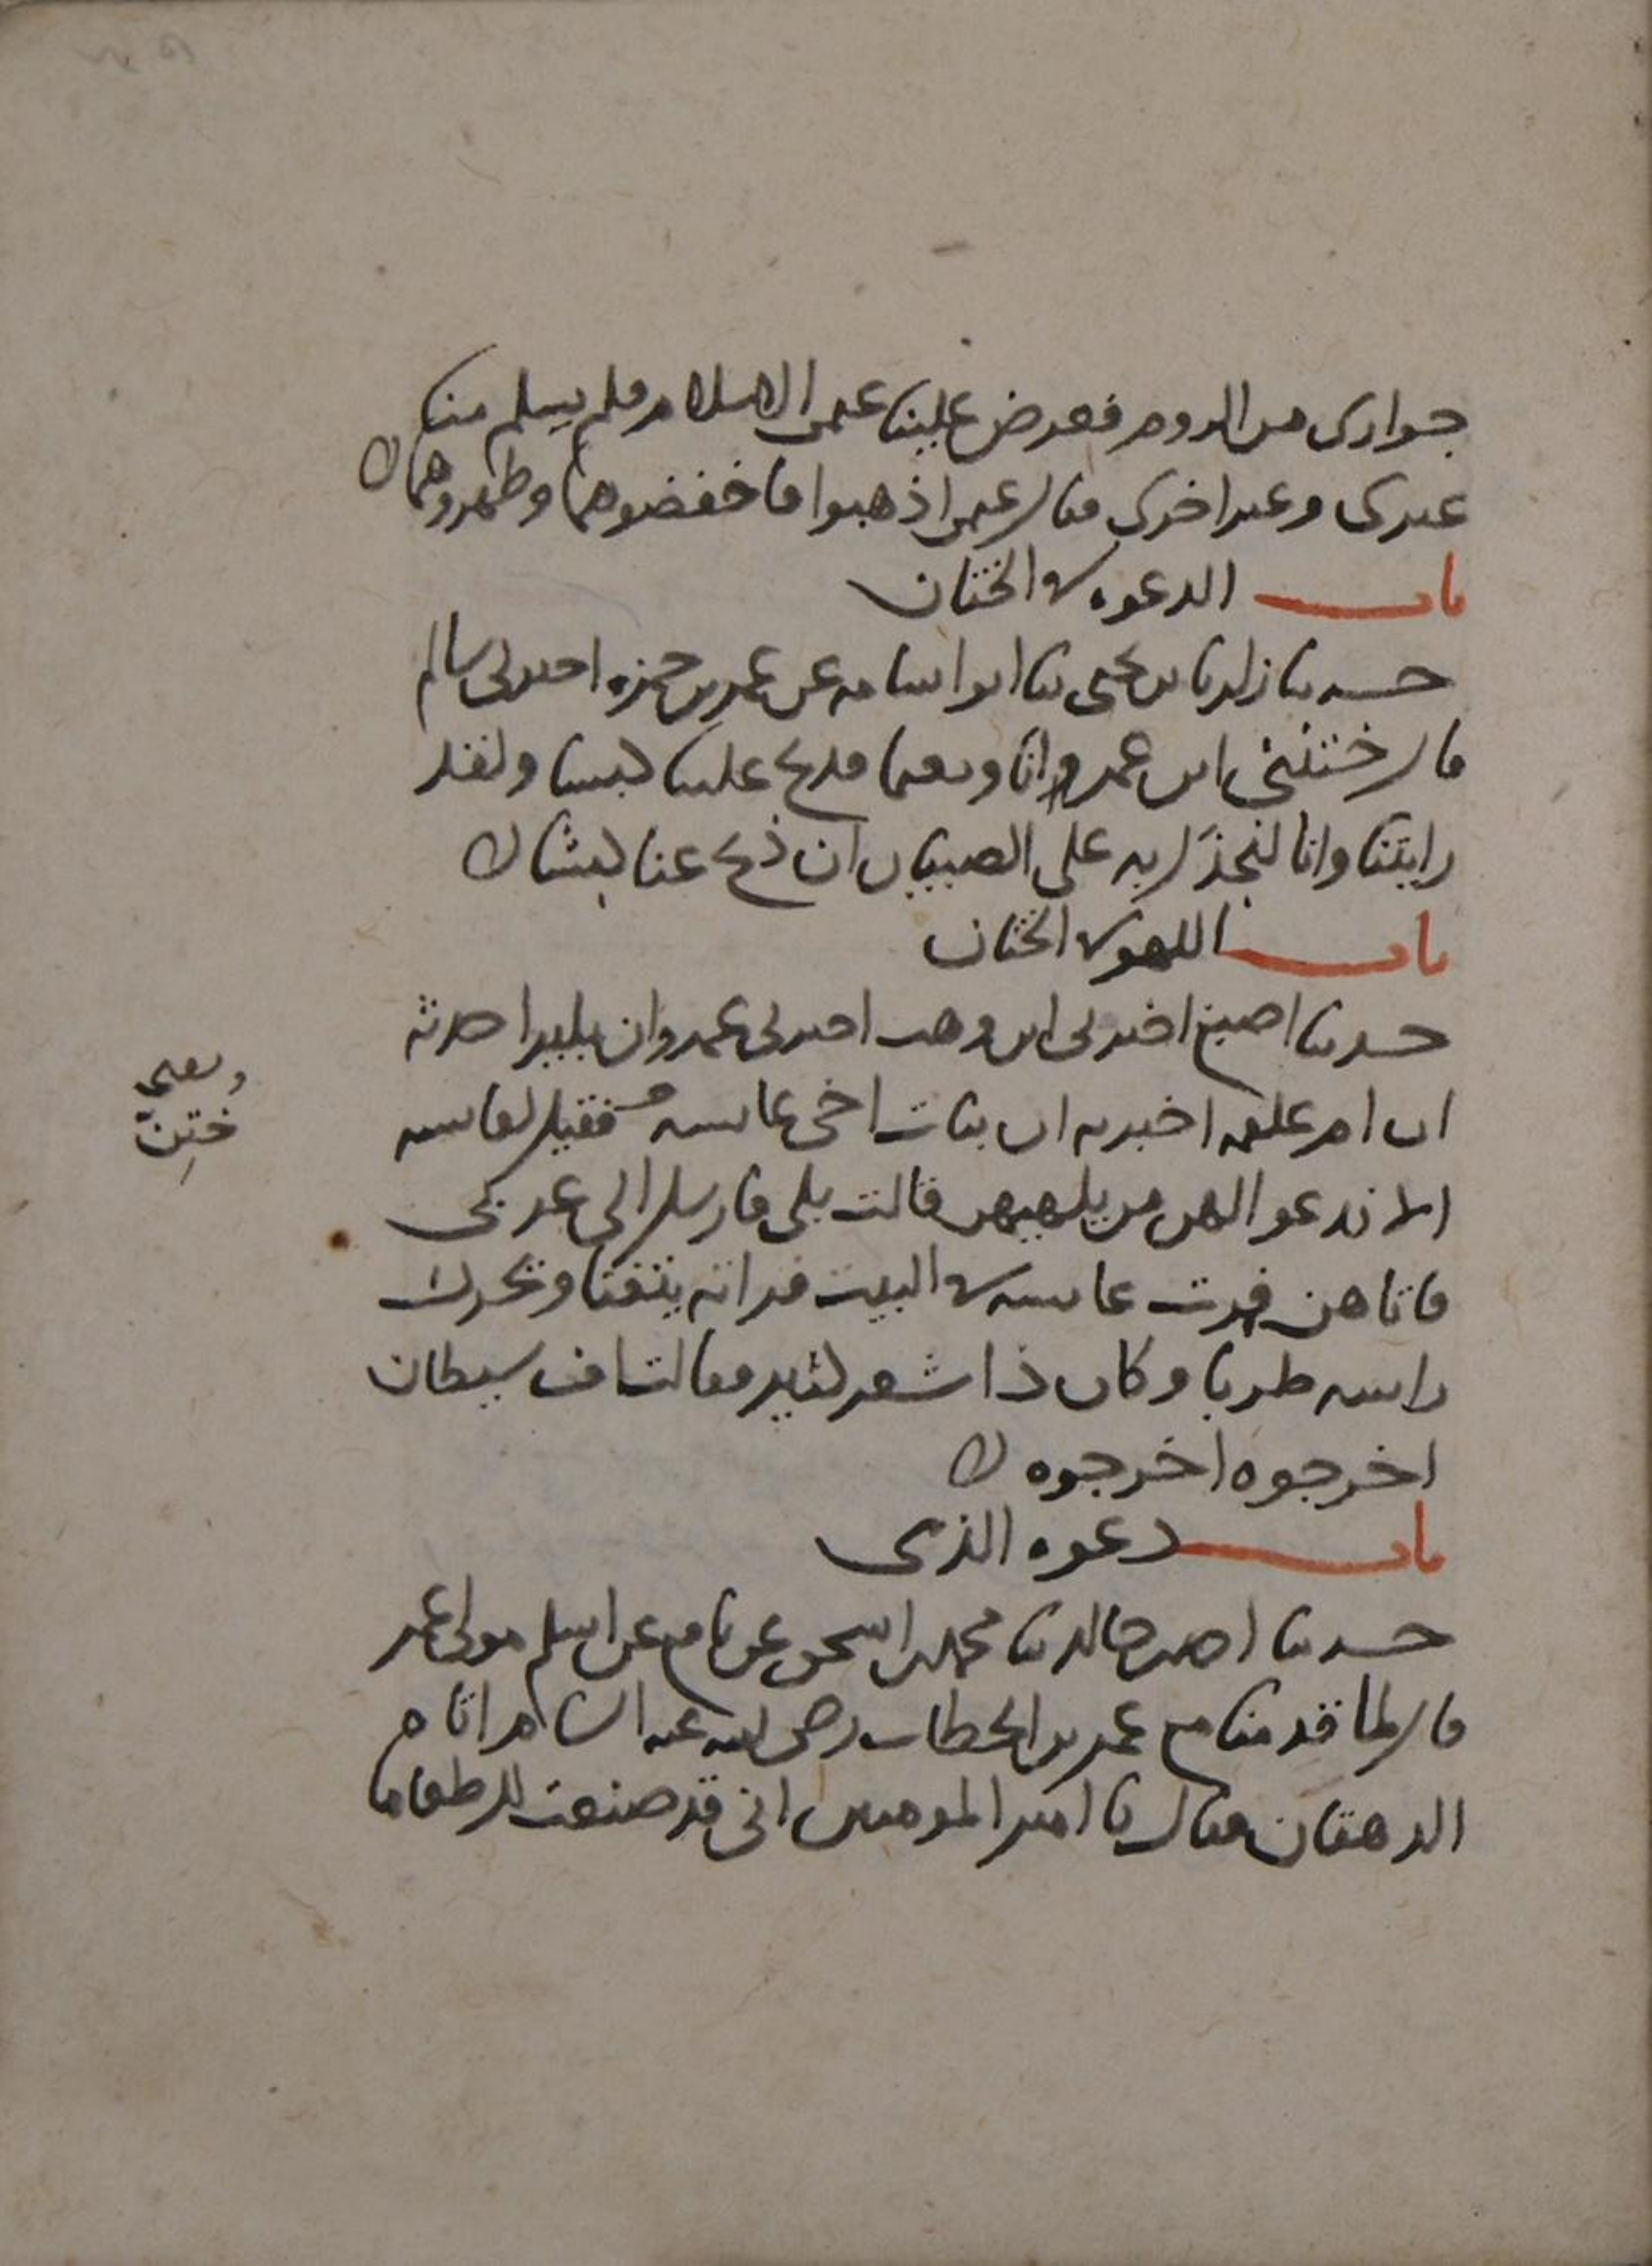 جوارى من الروم فعرض علينا عثمن الاسلام فلم يسلم منا
غيرى وغير اخرى فقال عثمن اذهبوا فاخفضوهما وطهروهما
باب الدعوه في الختان
حدثنا زكريا بن يحيى ثنا ابو اسامه عن عمر بن حمزه اخبرنى سالم
قال ختننى ابن عمر انا ونعيما فذبح علينا كبشا ولقد
رايتنا وانا لنجذل به على الصبيان ان ذبح عنا كبشا
باب اللهو في الختان
حدثنا اصبغ اخبرنى ابن وهب اخبرنى عمرو ان بكيرا حدثه
ان ام علقمه اخبرته ان بنات اخى عائشه فقيل لعائشه
الا ندعو لهن من يلهيهن قالت بلى فارسل الى عدى
فاتاهن فمرت عائشه في البيت فراته يتغنا ويحرك
راسه طربا وكان ذا شعر كثير فقالت اف شيطان
اخرجوه اخرجوه
باب دعوه الذمى
حدثنا احمد بن خالد ثنا محمد بن اسحق عن نافع عن اسلم مولى عمر
قال لما قدمنا مع عمر بن الخطاب رضى الله عنه الشام اتاه
الدهقان فقال يا امير المومنين انى قد صنعت لك طعاما
ختن